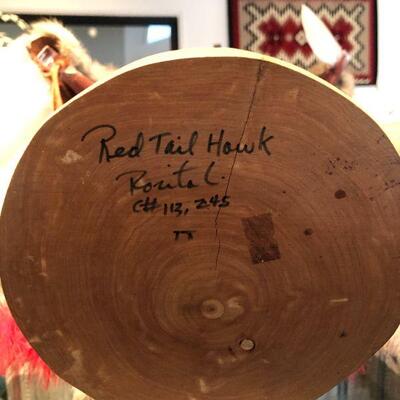 Red Tail Hawk
Rosita C.
C# 113,245